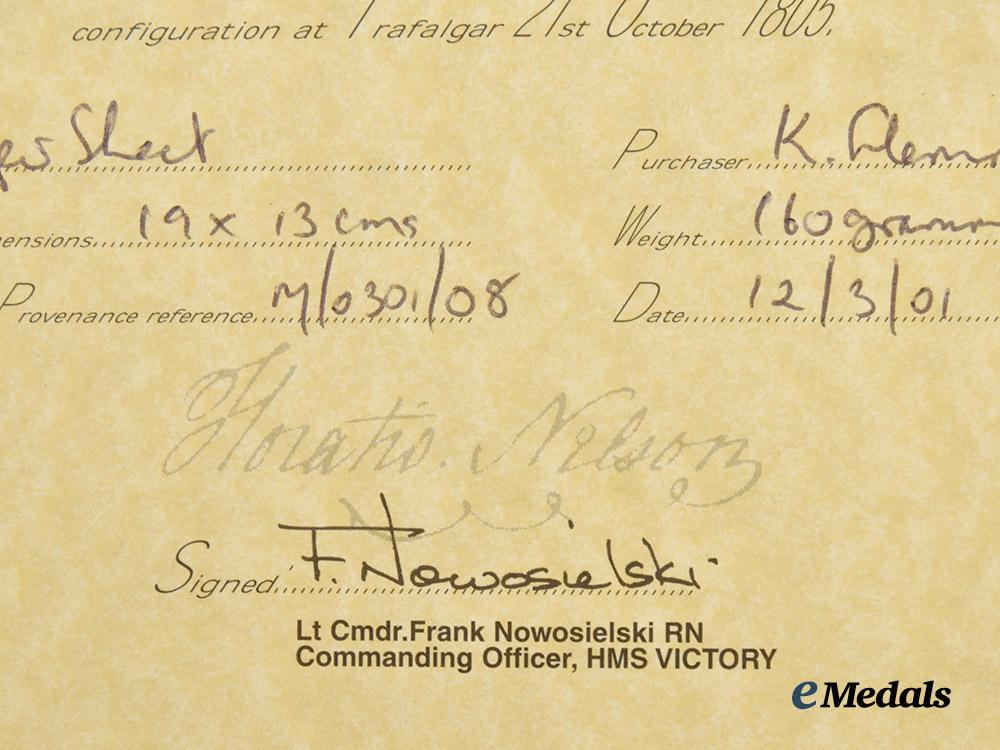 configuration at Trafalgar 21st October 1805.
Sheet
Purchaser K.
ensions 19 x 13 cms
Weight 160 gramm
Provenance reference M/0301/08
Date 12/3/01
Horatio Nelson
Signed F. Nowosielski
Lt Cmdr.Frank Nowosielski RN
Commanding Officer, HMS VICTORY
eMedals